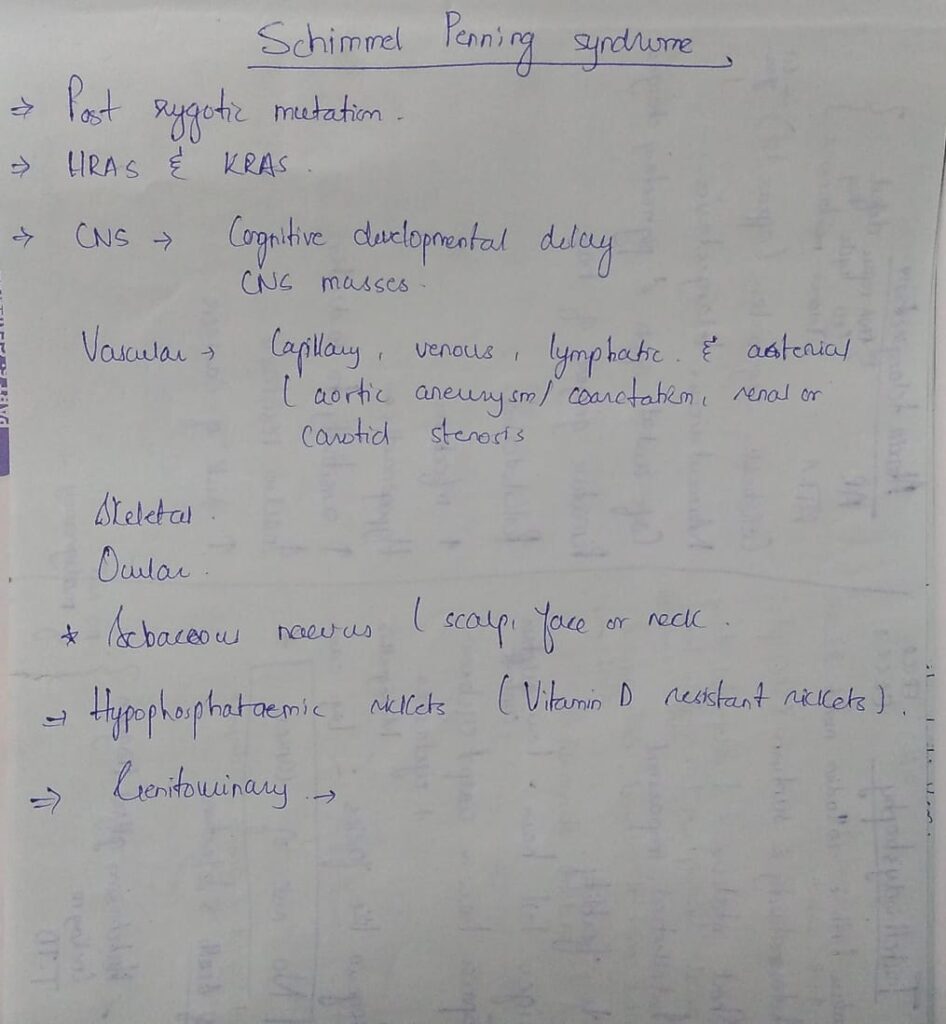 Schimmel Penning syndrome
⇒ Post zygotic mutation.
⇒ HRAS & KRAS.
⇒ CNS → Cognitive developmental delay
CNS masses.
Vascular → Capillary, venous, lymphatic. & arterial
( aortic aneurysm/ coarctation, renal or
carotid stenosis
Skeletal.
Ocular.
* Sebaceous naevus ( scalp, face or neck.
⇒ Hypophosphataemic rickets (Vitamin D resistant rickets).
⇒ Genitourinary →